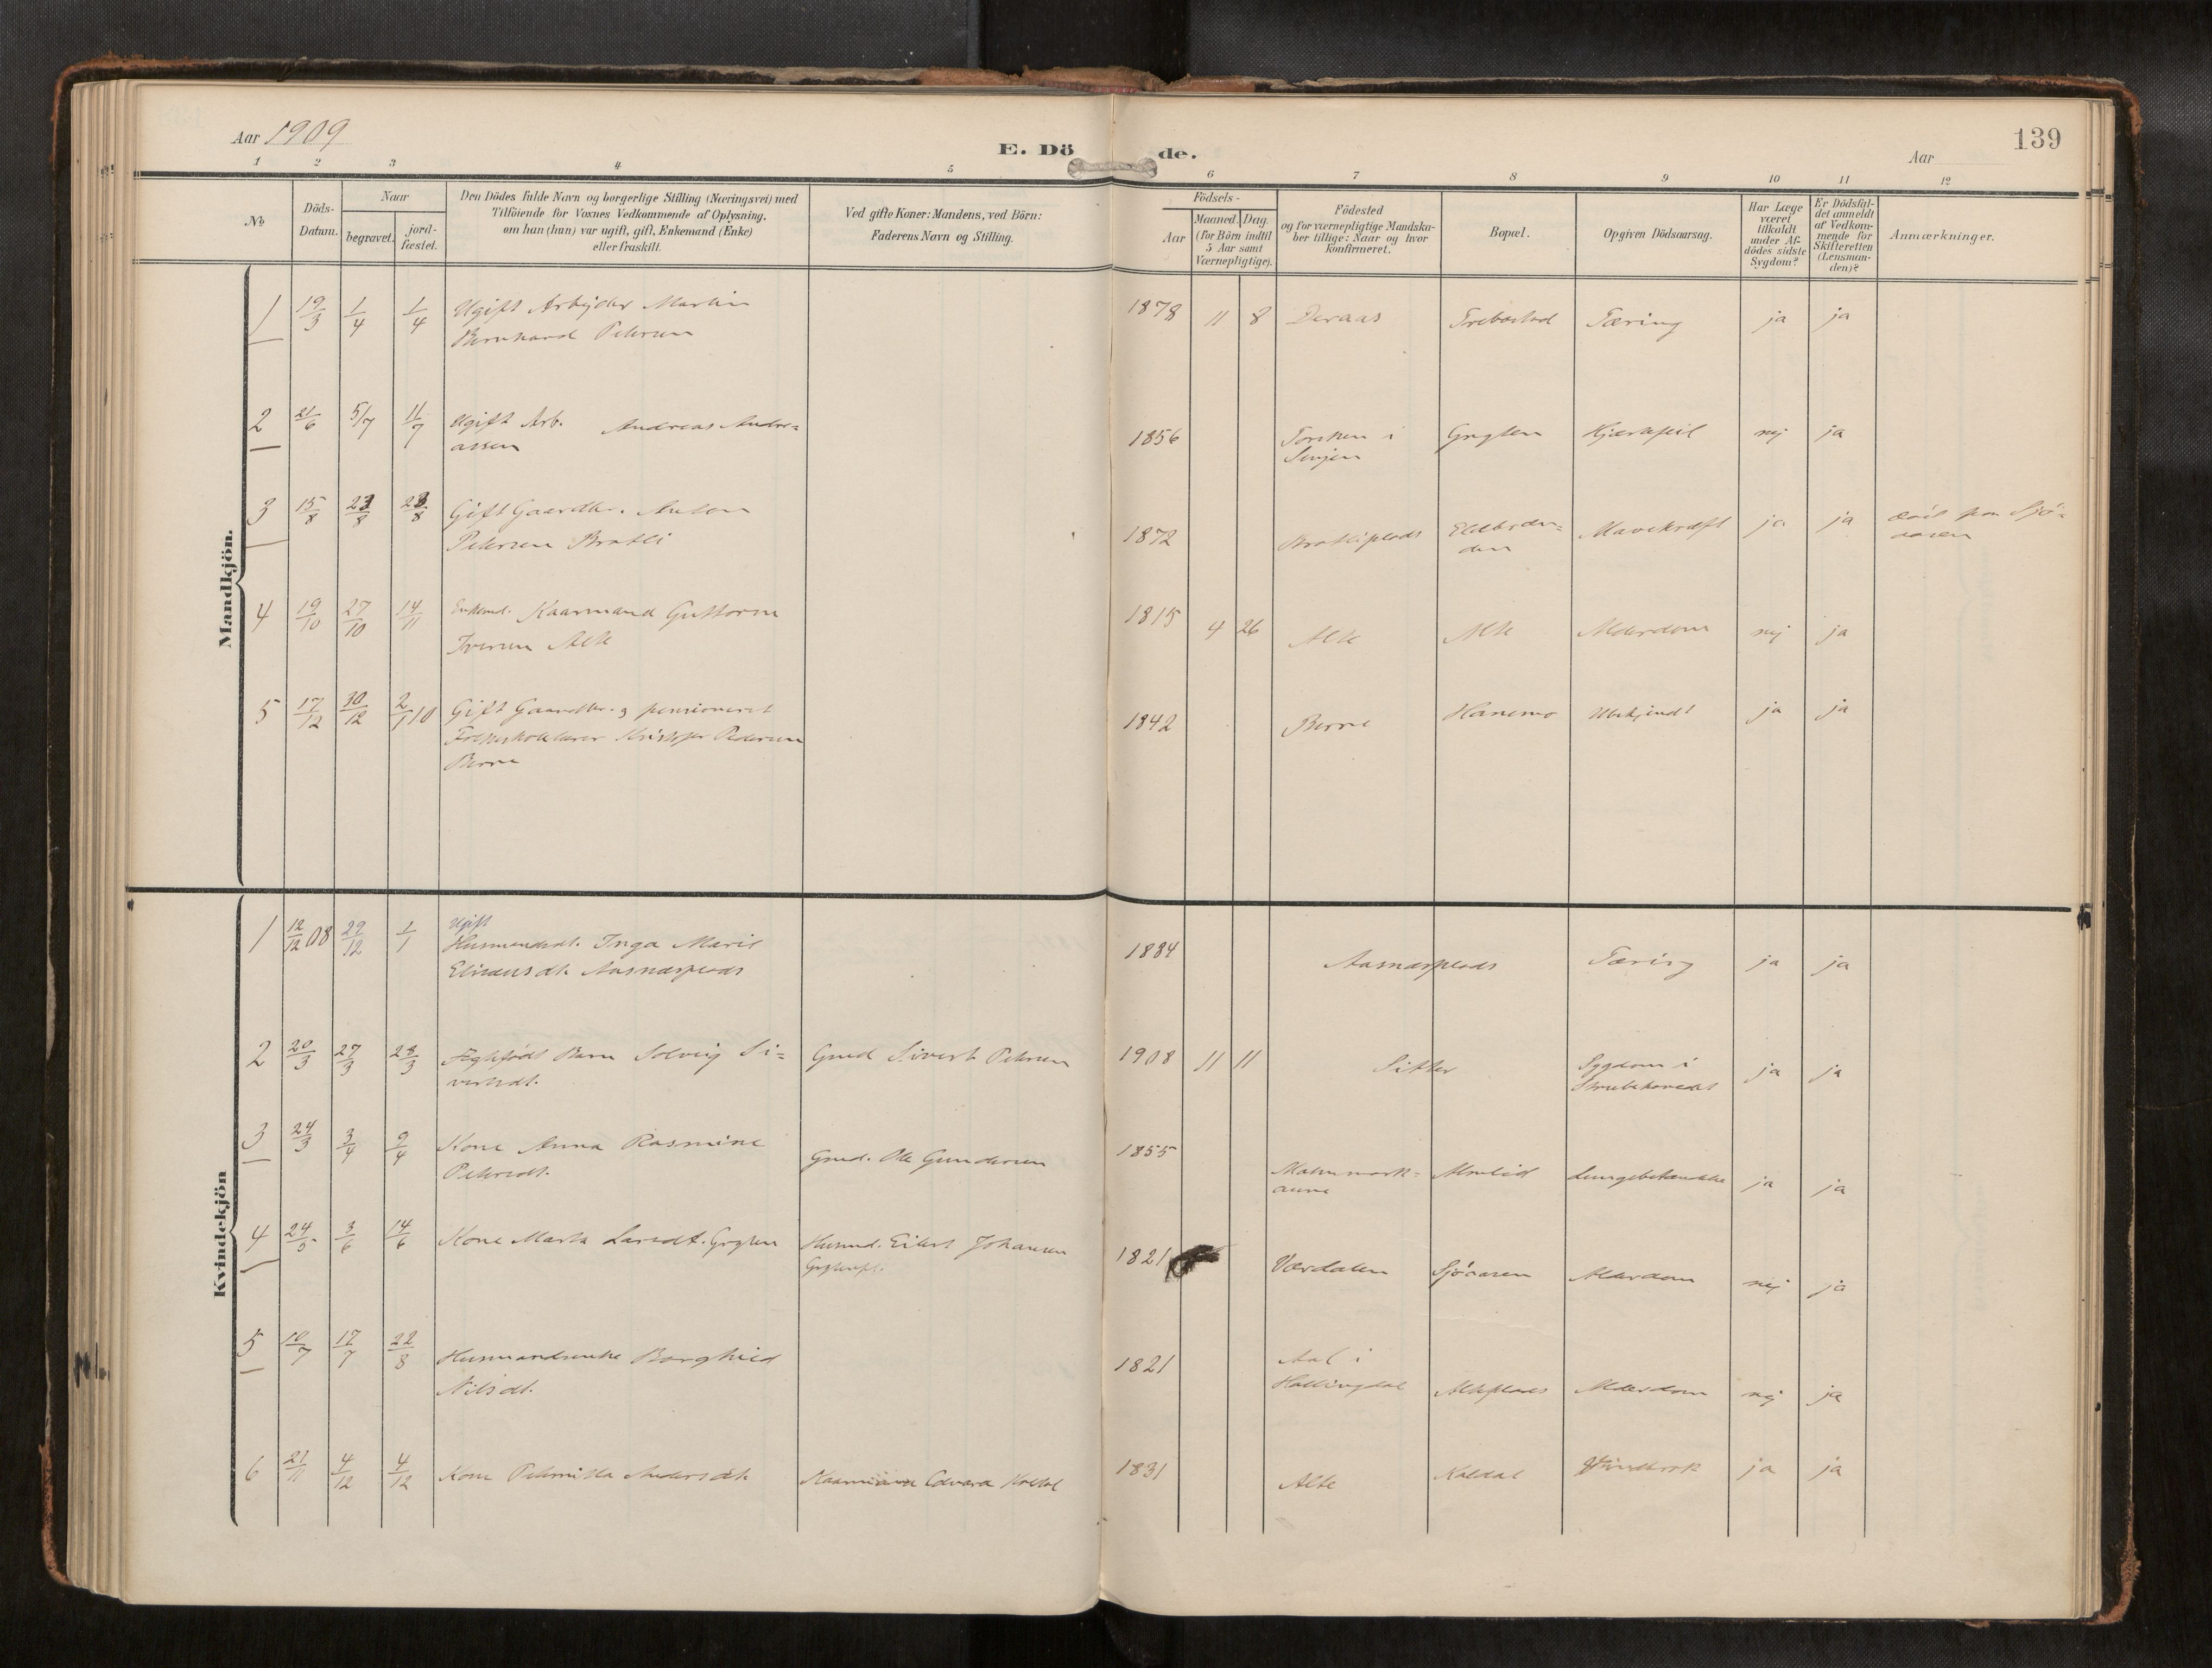 Aar 1909
E. Döde.
Aar
139
1 2 3 4 5 6 7 8 9 10 11 12
No
Döds-Datum.
Naar
begravet.
jord-fæstet.
Den Dödes fulde Navn og borgerlige Stilling (Næringsvei) med
Tilföiende for Voxnes Vedkommende af Oplysning.
om han (hun) var ugift, gift, Enkemand (Enke)
eller fraskilt.
Ved gifte Koner: Mandens, ved Börn:
Faderens Navn og Stilling.
Födsels-
Aar
Maaned. Dag.
(for Börn indtil
5 Aar samt
Værnepligtige).
Födested
og for værnepligtige Mandska-
ber tillige: Naar og hvor
konfirmeret.
Bopæl.
Opgiven Dödsaarsag.
Har Læge
været
tilkaldt
under Af-
dödes sidste
Sygdom?
Er Dödsfal-
det anmeldt
af Vedkom-
mende for
Skifteretten
(Lensman-
den)?
Anmærkninger.
Mandkjön.
1 19/3 1/4 1/4 Ugift Arbejder Martin 1878 11 8 Deraas Tæring ja ja
Bernhard Petersen
2 21/6 5/7 11/7 Ugift Arb. Andreas Andre= 1856 Torsken i Grøten Hjertefeil nej ja
assen Senjen
3 15/8 23/8 23/8 Gift Gaardbr. Anton 1872 Bratliplads Mavekræft ja ja
Petersen Bratli
4 19/10 27/10 14/11 Enkemd. Kaarmand Guttorm 1815 4 26 Alte Alte Alderdom nej ja
Iversen Alte
5 17/12 30/12 2/1 10 Gift Gaardbr. og pensioneret 1842 Berre Hanemo Ubekjendt ja ja
Folkeskolelærer Kristofer Pedersen
Berre
Kvindekjön
1 12/12 08 29/12 1/1 Ugift
Husmandsdt. Inga Marie 1884 Aasnæsplads Tæring ja ja
Eliseusdt. Aasnæsplads
2 20/3 27/3 28/3 Ægtefødt Barn Solveig Si= Gmd Sivert Petersen 1908 11 11 Sitter Sygdom i ja ja
vertsdt. Strubehovedet
3 24/3 3/4 9/4 Kone Anna Rasmine Gmd. Ole Gundersen 1855 Malmmark= Almlid Lungebetændelse ja ja
Petersdt.
4 24/5 3/6 14/6 Kone Marta Larsdt. Husmd. Eilert Johansen 1821 Værdalen Sjöaasen Alderdom nej ja
5 10/7 17/7 22/8 Husmandsenke Borghild 1821 Aal i
Nilsdt. Hallingdal Alteplads Alderdom nej ja
6 21/11 4/12 4/12 Kone Peternilla Andersdt. Kaarmand Edvard Kaldal 1831 Alte Kaldal ja ja